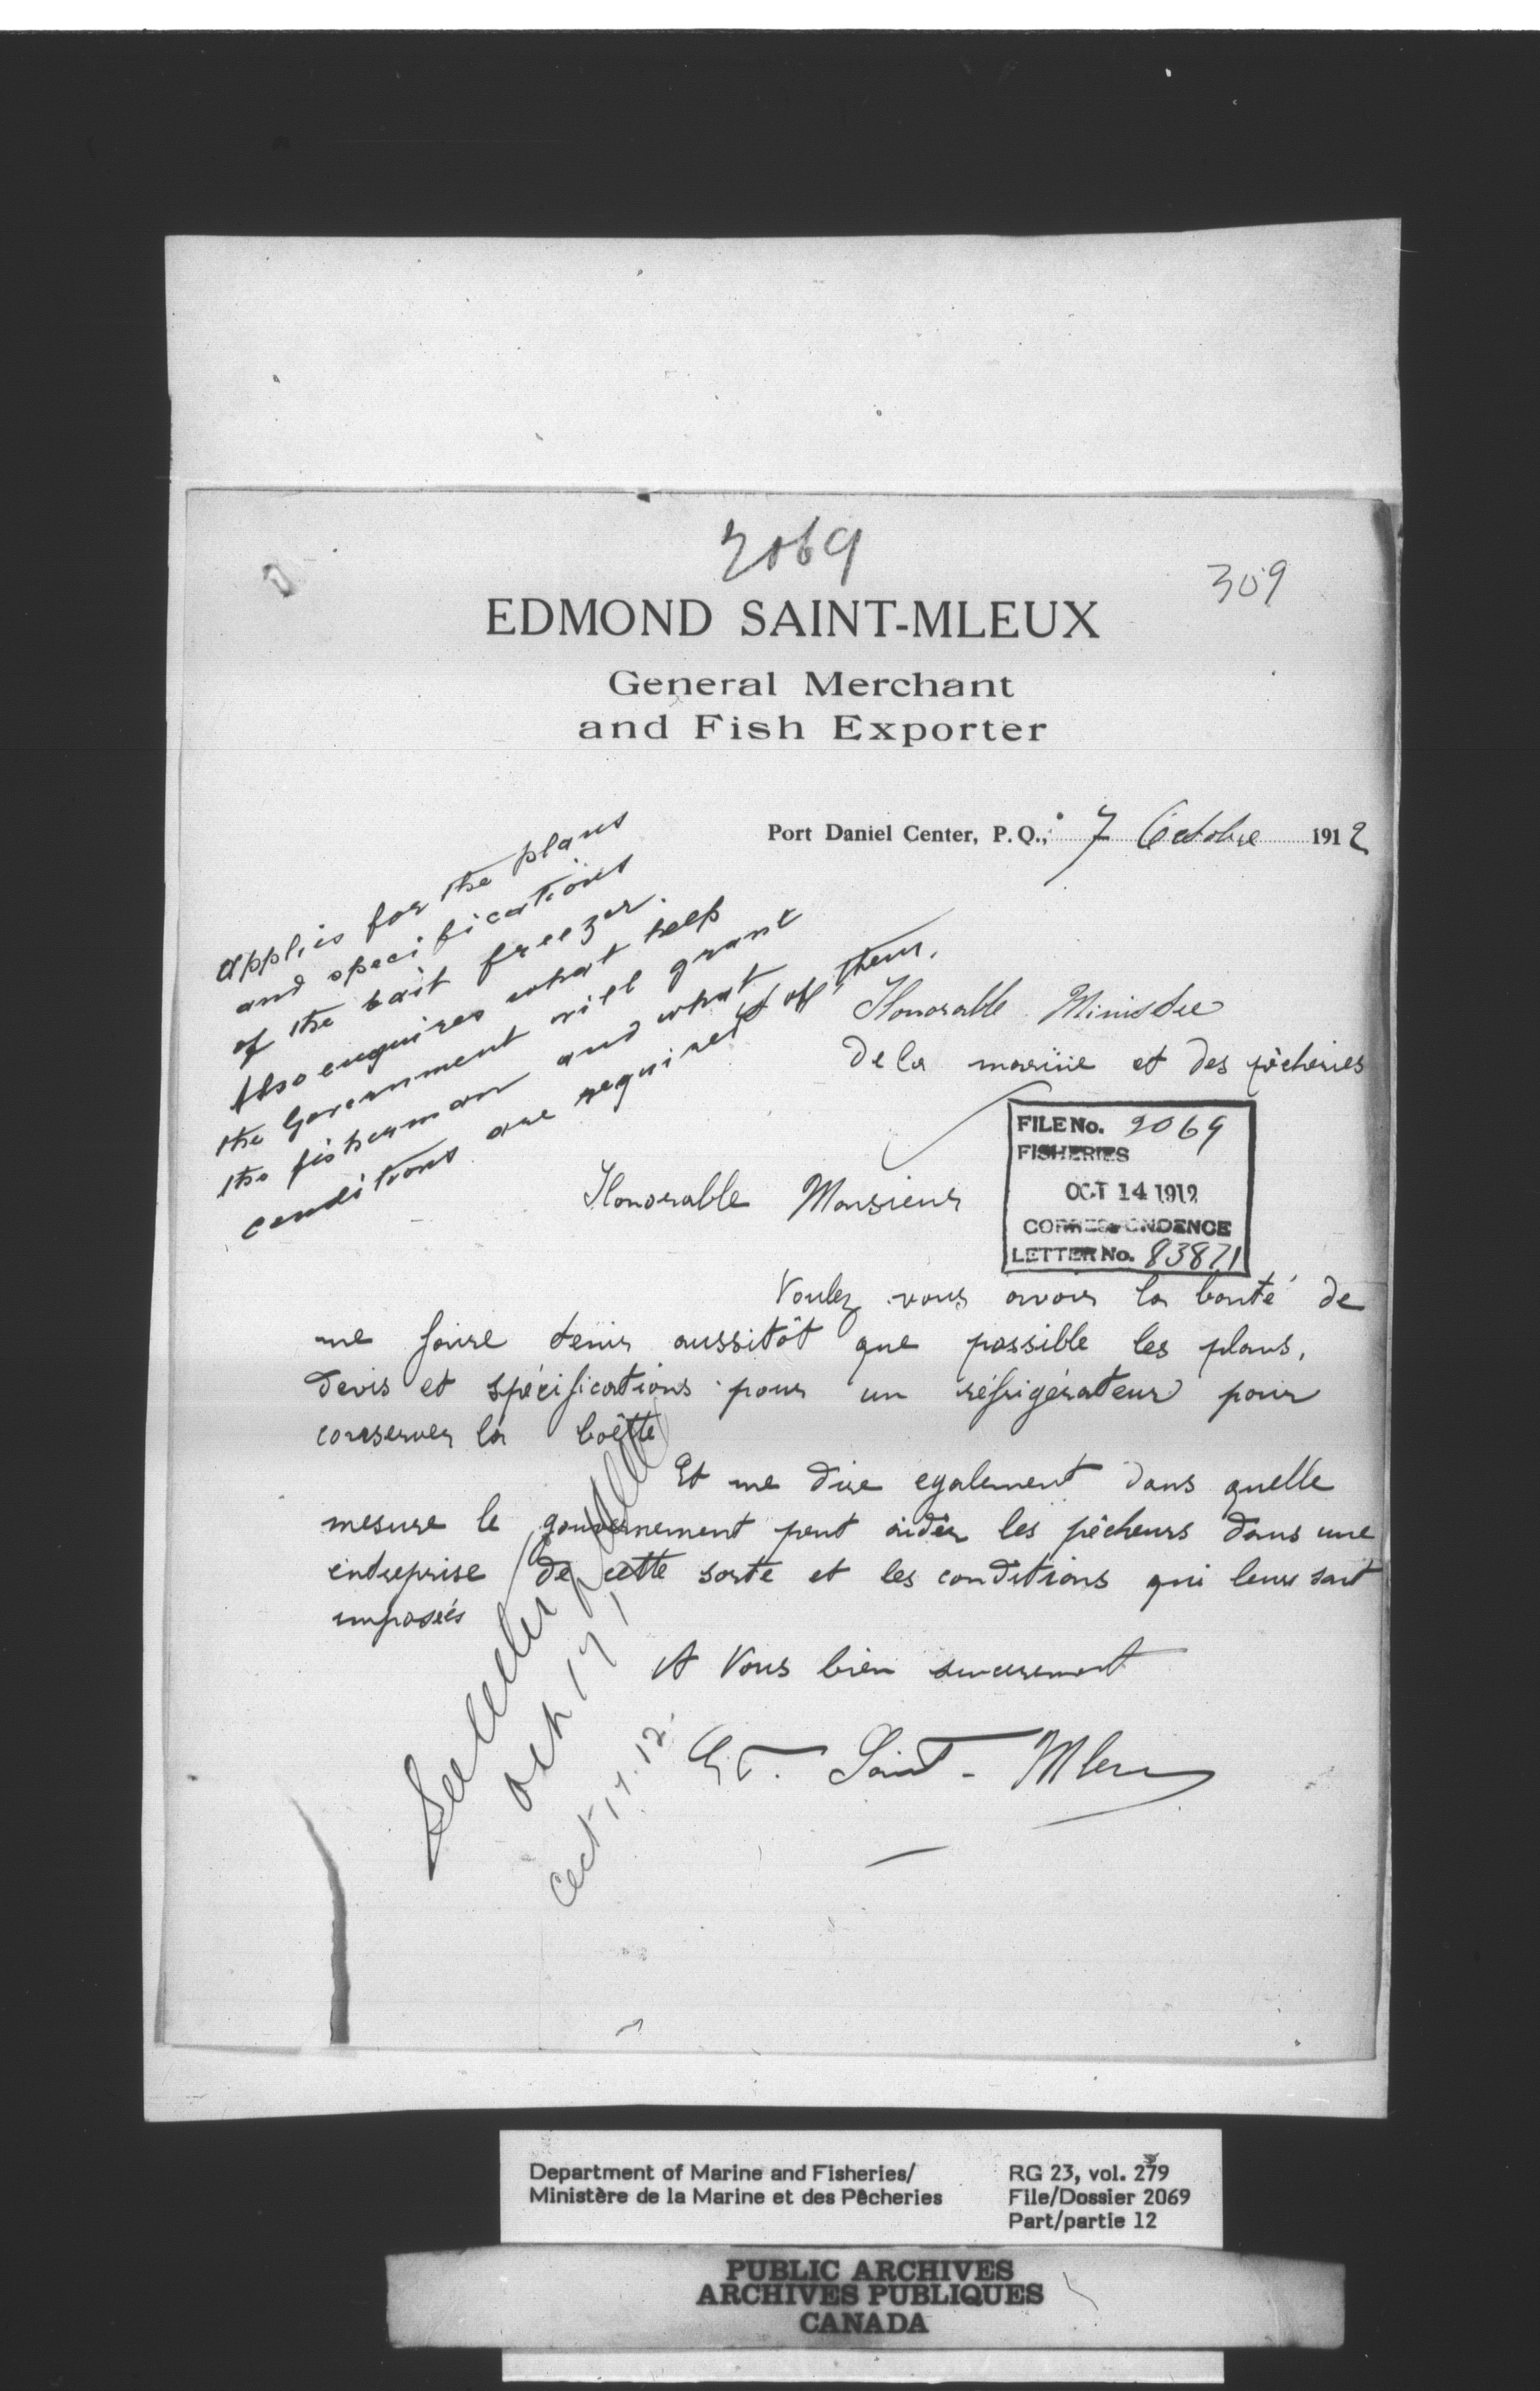 2069
309
EDMOND SAINT-MLEUX
General Merchant
and Fish Exporter
Port Daniel Center, P.Q., 7 Octobre 1912
Applies for the plans
and specifications
of the bait freezer.
Also enquires what help
the Government will grant
the fisherman and what
conditions are required of them.
Honorable Ministre
de la marine et des pêcheries
FILE No. 2069
FISHERIES
OCT 14 1912
CORRESPONDENCE
LETTER No. 83871
Honorable Monsieur
Voulez vous avoir la bonté de
me faire tenir aussitôt que possible les plans,
devis et spécifications pour un réfrigérateur pour
conserver la boëtte
Et me dire egalement dans quelle
mesure le gouvernement peut aider les pêcheurs dans une
entreprise de cette sorte et les conditions qui leur sont
imposées
A Vous bien sincerement
Ed. Saint-Mleux
Oct 17
Oct 17.12.
Department of Marine and Fisheries/
Ministère de la Marine et des Pêcheries
RG 23, vol. 279
3
File/Dossier 2069
Part/partie 12
PUBLIC ARCHIVES
ARCHIVES PUBLIQUES
CANADA